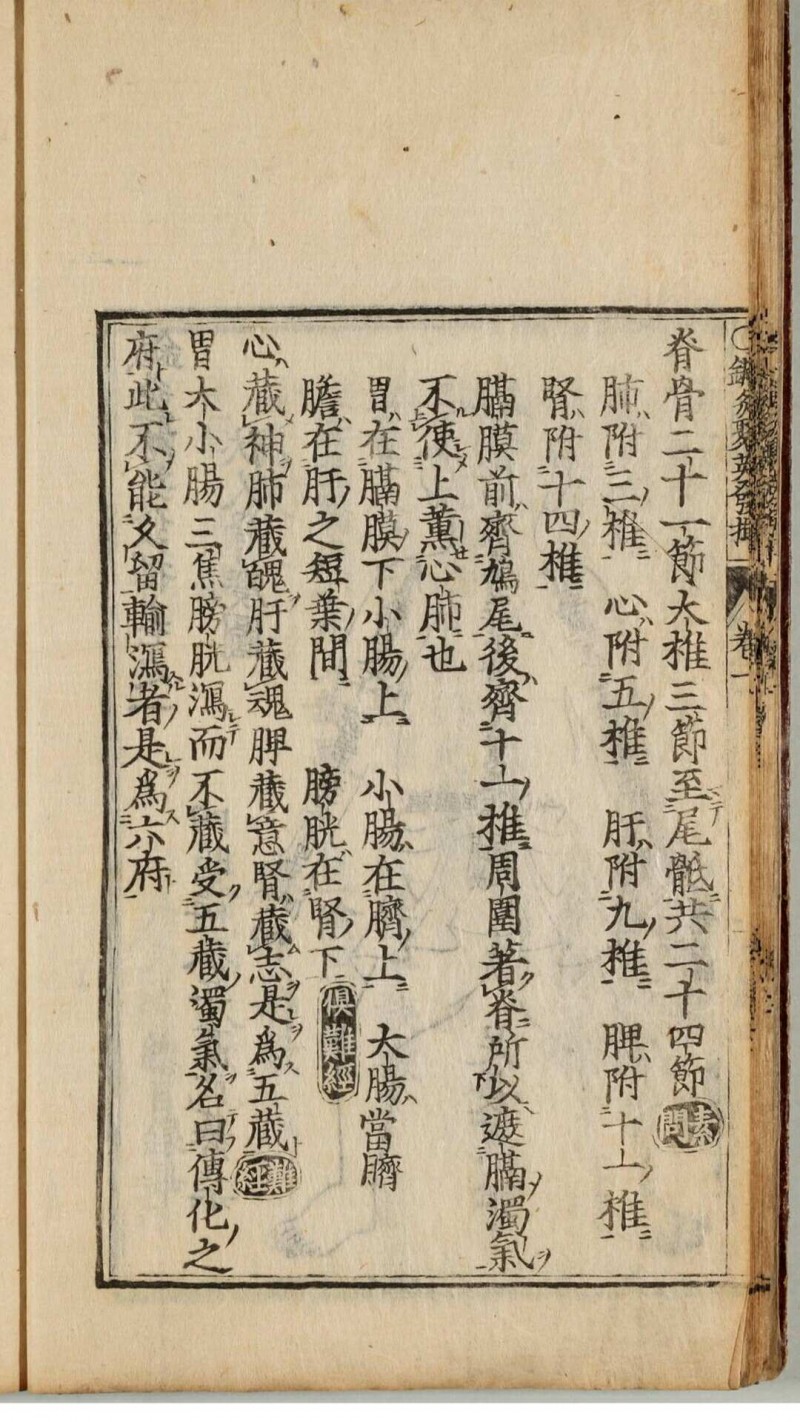 脊骨二十一節大椎三節至尾骶共二十四節 素問
肺附三椎 心附五椎 肝附九椎 脾附十一椎
腎附十四椎
膈膜前齊鳩尾後齊十一椎周圍著脊所以遮膈濁氣
不使上薰心肺也
胃在膈膜下小腸上 小腸在臍上 大腸當臍
膽在肝之短葉間 膀胱在腎下 俱難經
心藏神肺藏魄肝藏魂脾藏意腎藏志是爲五藏 難經
胃大小腸三焦膀胱瀉而不藏受五藏濁氣名曰傳化之
府此不能久留輸瀉者是爲六府
卷一